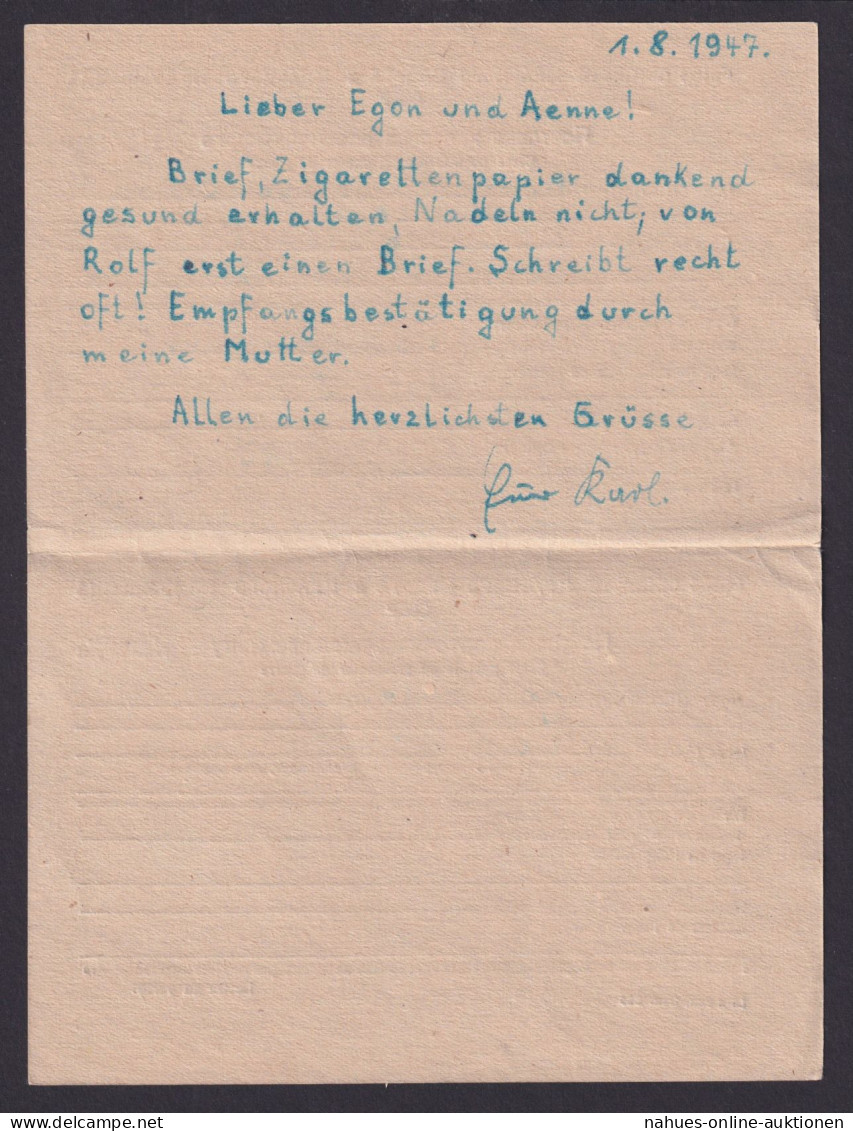 1.8.1947.
Lieber Egon und Aenne!
Brief, Zigarettenpapier dankend
gesund erhalten, Nadeln nicht, von
Rolf erst einen Brief. Schreibt recht
oft! Empfangsbestätigung durch
meine Mutter.
Allen die herzlichsten Grüsse
Euer Karl.
nahues-online-auktionen